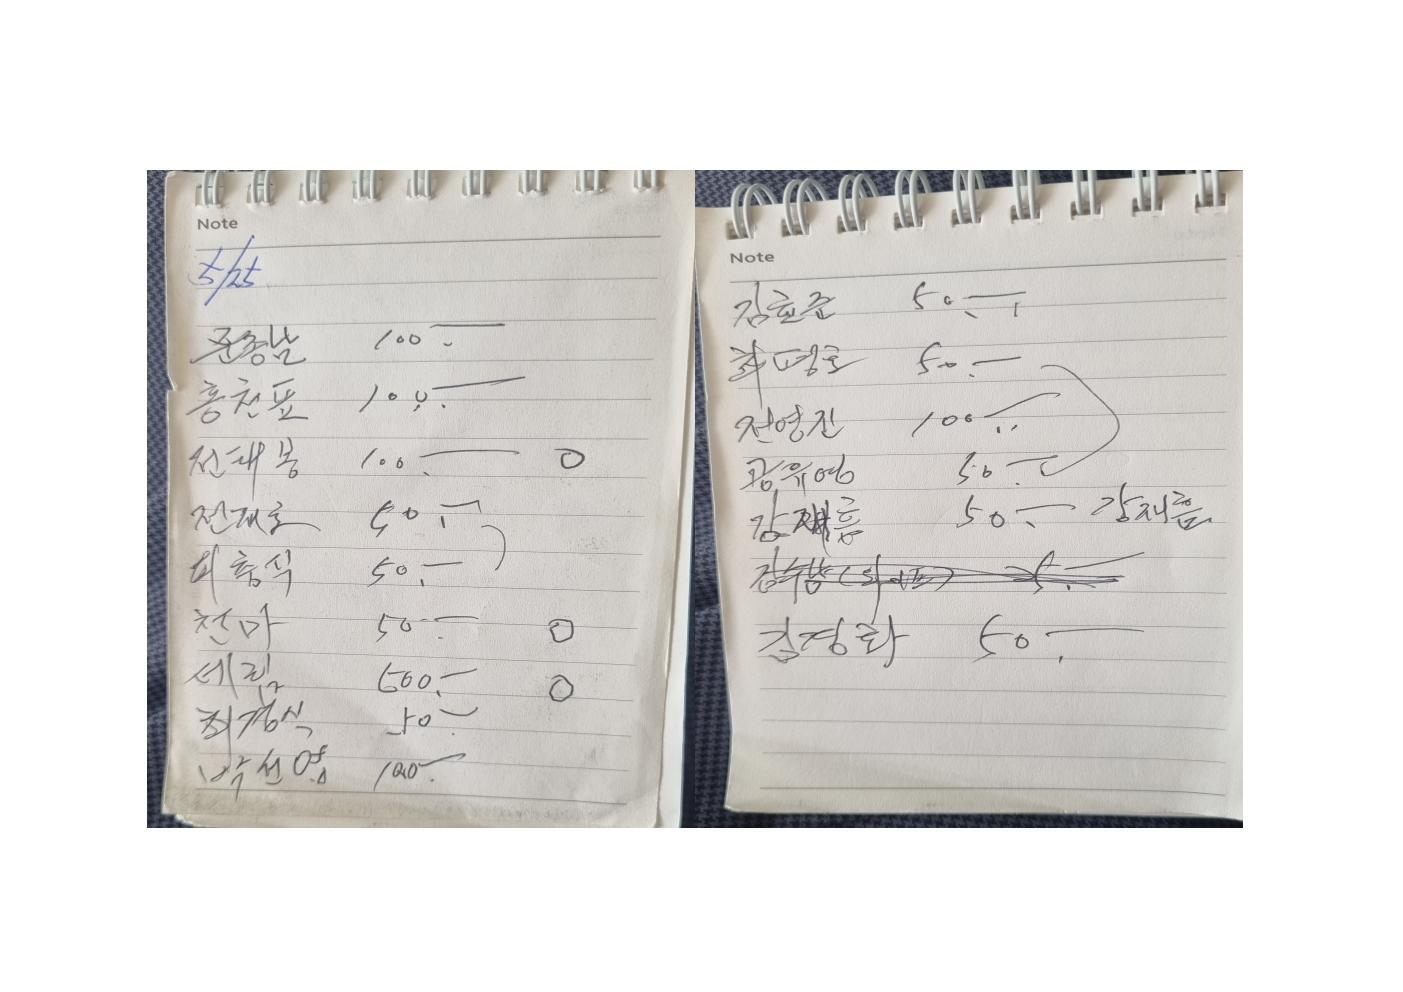 Note
5/25
준총남 100.—
홍천표 100.—
전태봉 100.— O
전재호 50.—
피흥식 50.—
천마 50.— O
세림 600.— O
최경식 50.—
박선영 100.—
Note
김효준 50.—
최평호 50.—
전영진 100.—
광유영 50.—
강재흠 50.— 강재흠
5.—
김경화 50.—